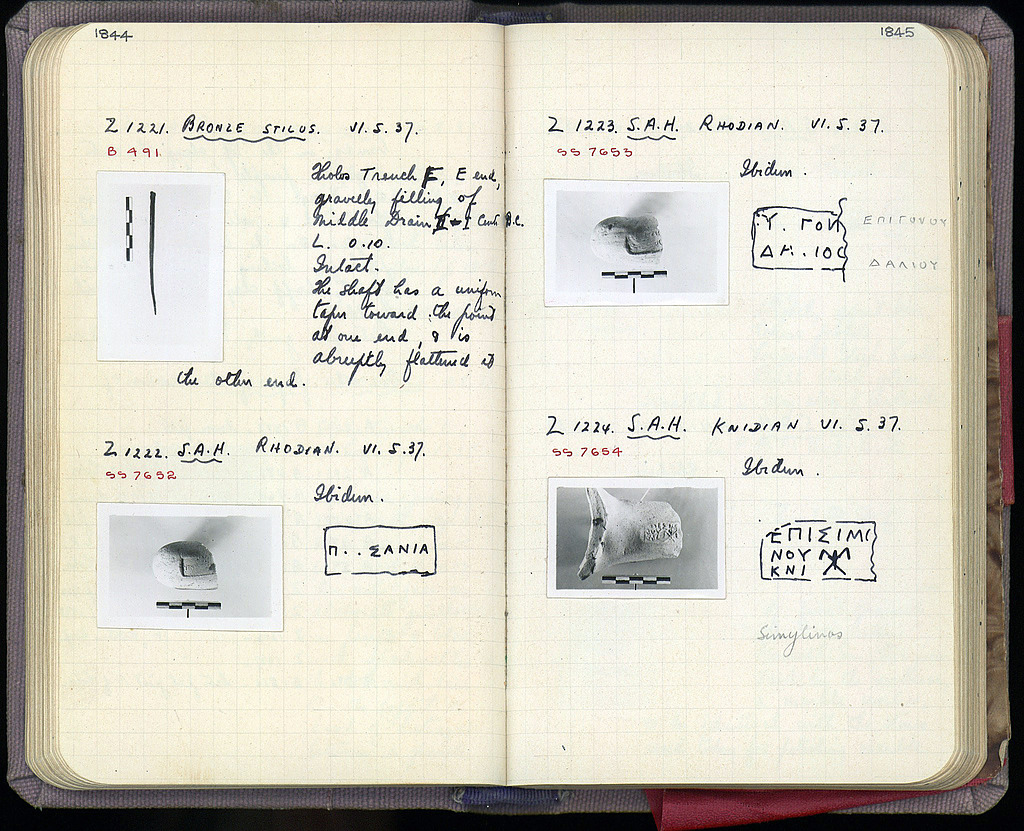 1844
Z 1221. BRONZE STILUS. VI. S. 37.
B 491
Tholos Trench F, E end,
gravelly filling of
Middle Drain II-I Cent. B.C.
L. 0.10.
Intact.
The shaft has a uniform
taper toward the point
at one end, & is
abruptly flattened at
the other end.
Z 1222. S.A.H. RHODIAN. VI. S. 37.
SS 7652
Ibidem.
Π . . ΣΑΝΙΑ
1845
Z 1223. S.A.H. RHODIAN. VI. S. 37.
SS 7653
Ibidem.
ΕΠΙΓΟΝΟΥ
ΔΑΛΙΟΥ
Z 1224. S.A.H. KNIDIAN VI. S. 37.
SS 7654
Ibidem.
ΕΠΙΣΙΜΙ
ΝΟΥ
ΚΝΙ
Simylinos